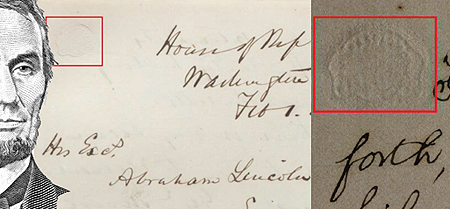 House of Rep
Washington
Feb 1.
His Exc.
Abraham Lincoln
forth,